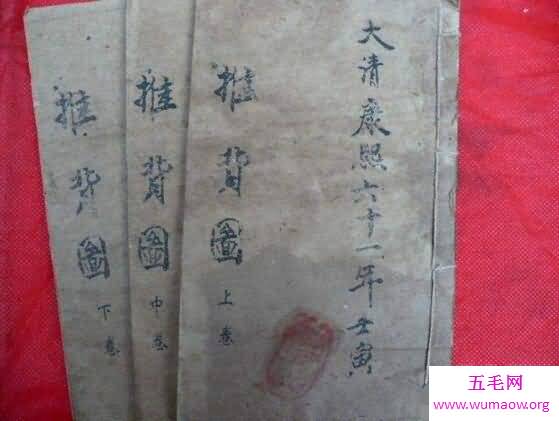 大清康熙六十一年壬寅
推背圖
上卷
推背圖
中卷
推背圖
下卷
五毛网
www.wumaow.org